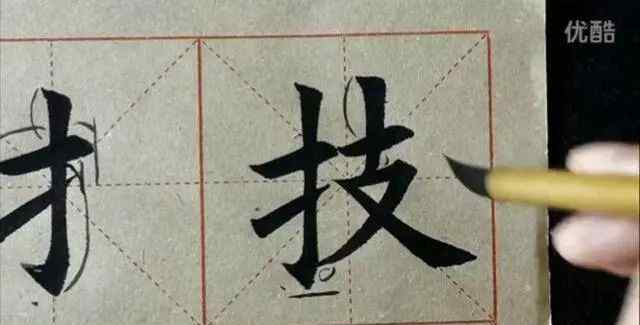 优酷
扌技